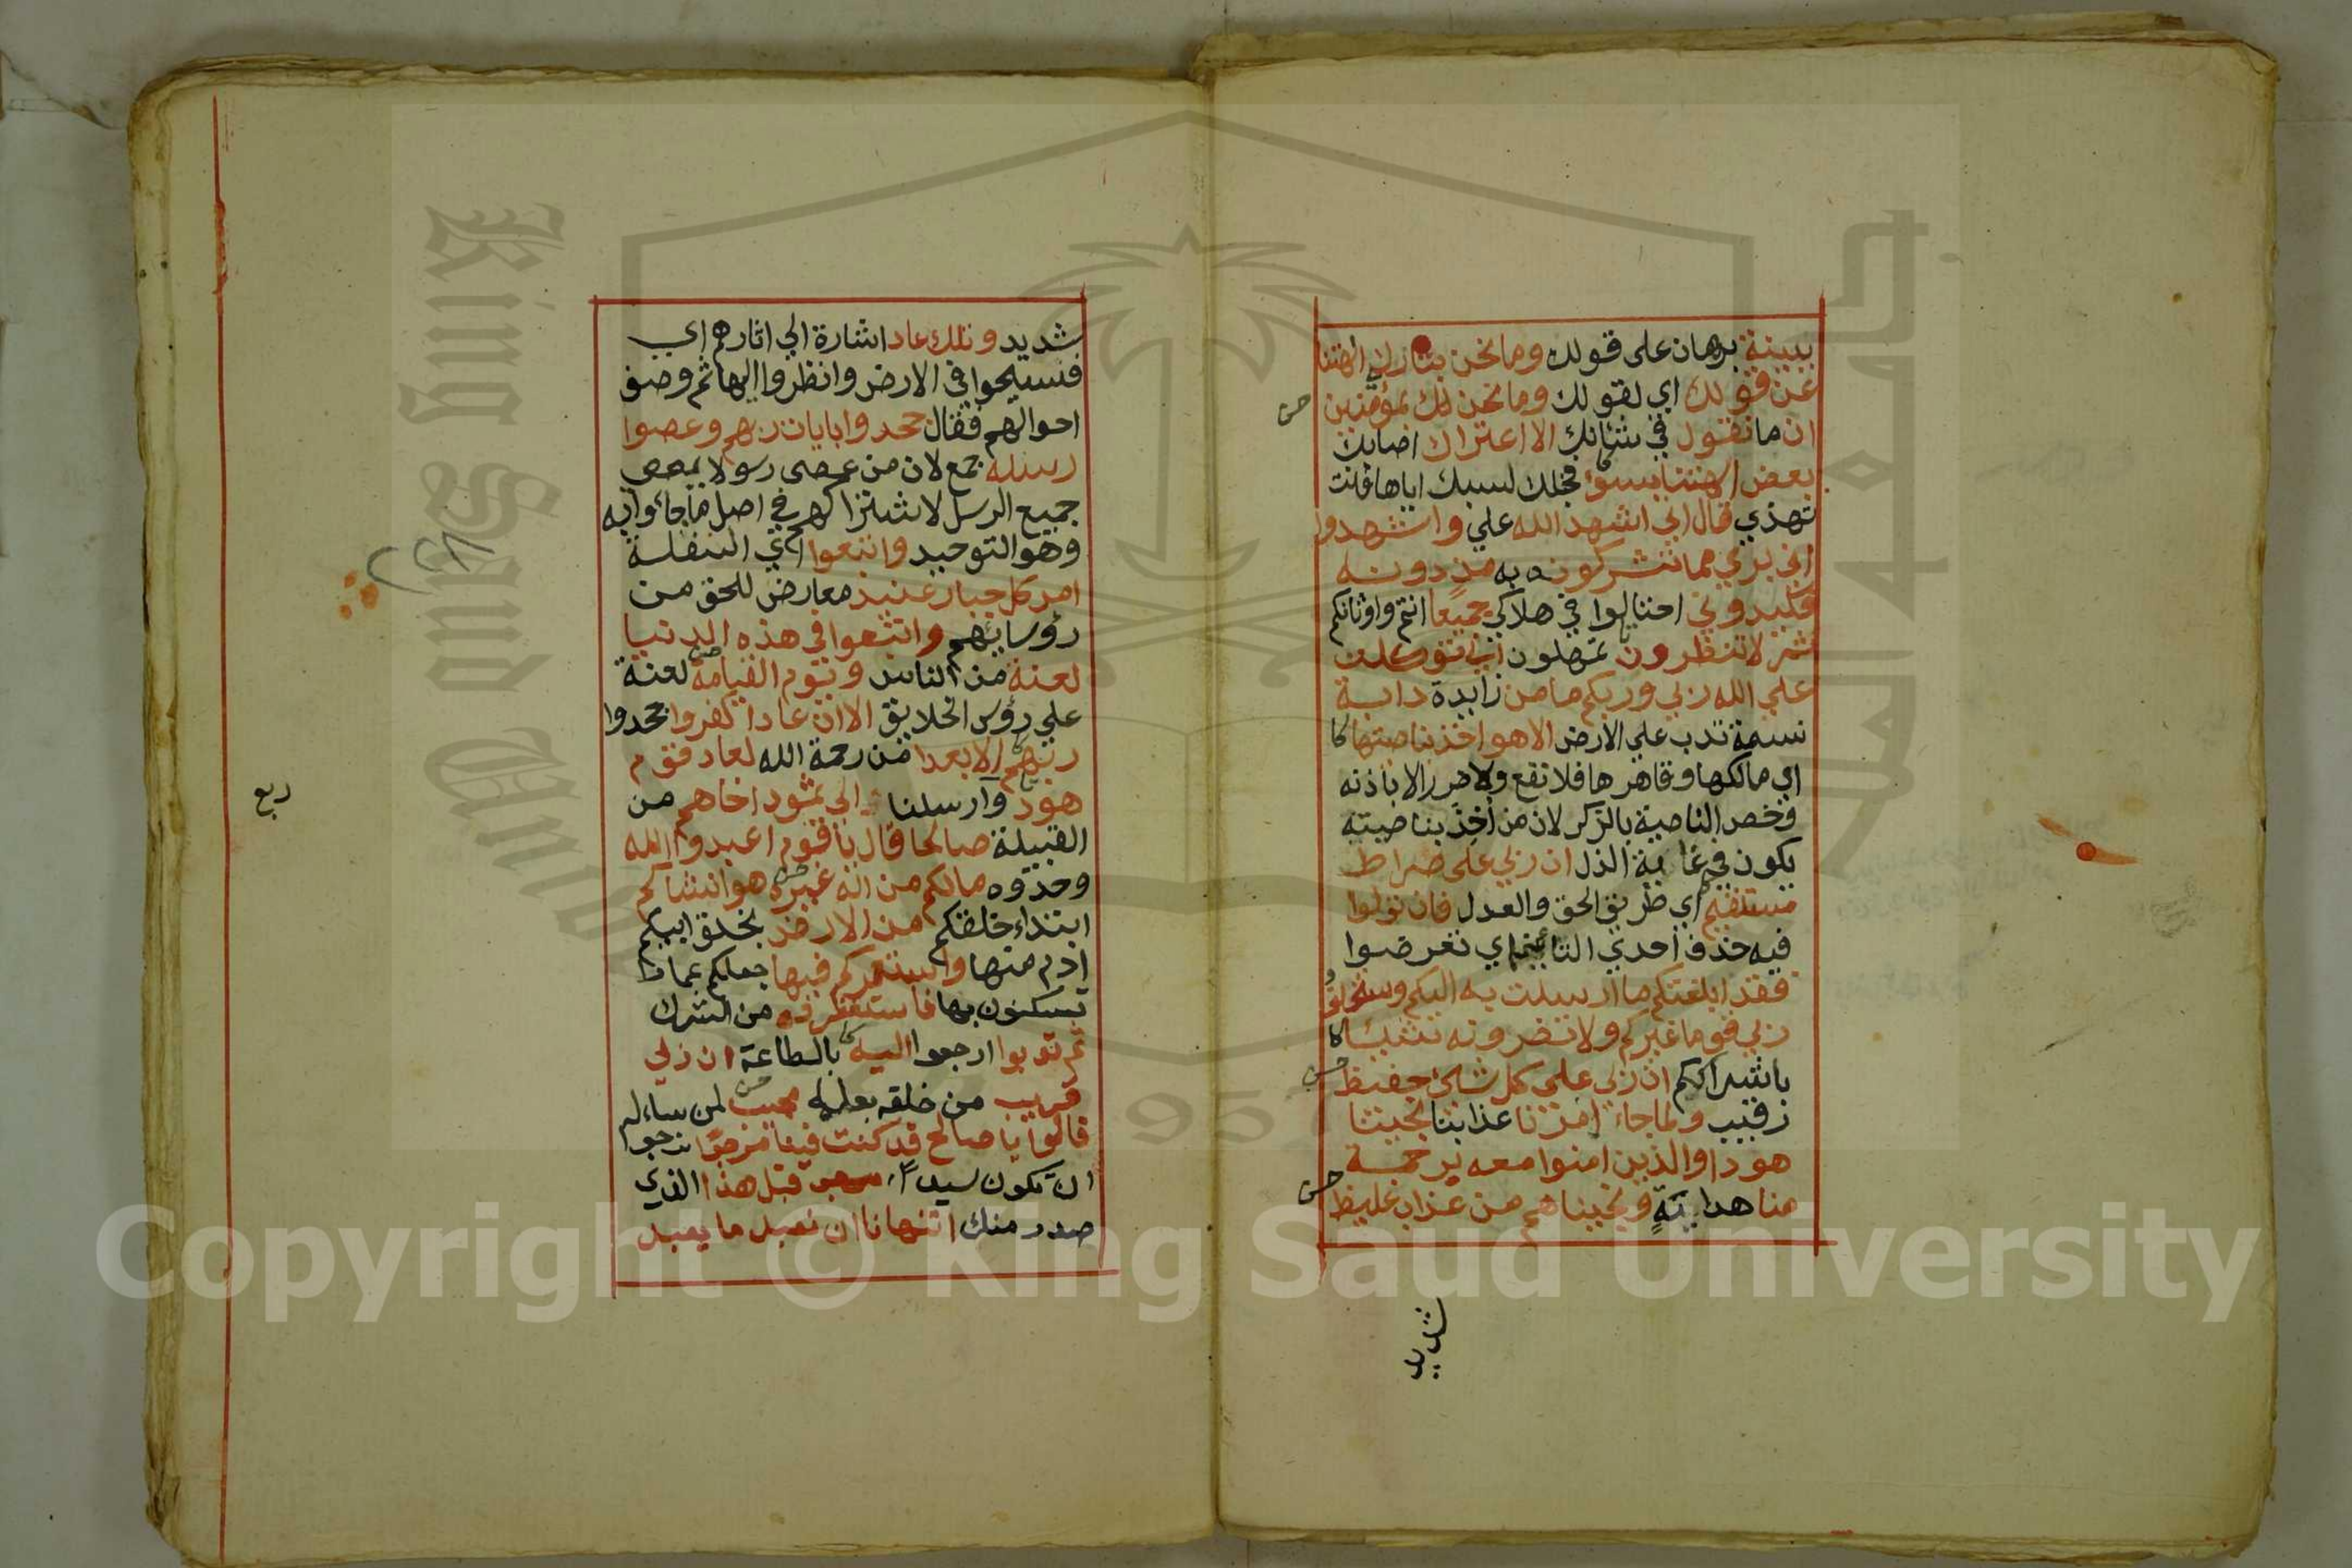 ببينة برهان على قولك وما نحن بتاركي الهتنا
عن قولك اي لقولك وما نحن لك بمؤمنين
ان ما نقول في شانك الا اعتراك اصابك
بعض الهتنا بسوء فخبلك لسبك اياها فانت
تهذي قال اني اشهد الله علي واشهدوا
اني بريء مما تشركونه به من دونه
فكيدوني احتالوا في هلاكي جميعا انتم واوثانكم
ثم لا تنظرون تمهلون اني توكلت
علي الله ربي وربكم ما من زايدة دابة
نسمة تدب علي الارض الا هو اخذ بناصيتها
اي مالكها وقاهرها فلا نفع ولا ضرر الا باذنه
وخص الناصية بالذكر لان من أخذ بناصيته
يكون في غاية الذل ان ربي على صراط
مستقيم اي طريق الحق والعدل فان تولوا
فيه حذف احدي التائين اي تعرضوا
فقد ابلغتكم ما ارسلت به اليكم ويستخلف
ربي قوما غيركم ولا تضرونه شيئا
باشراككم ان ربي على كل شئ حفيظ
رقيب ولما جاء امرنا عذابنا نجينا
هودا والذين امنوا معه برحمة
منا هداية ونجيناهم من عذاب غليظ
شديد
شديد وتلك عاد اشارة الي اثارهم اي
فسيحوا في الارض وانظروا اليها ثم وصف
احوالهم فقال جحدوا بايات ربهم وعصوا
رسله جمع لان من عصى رسولا عصى
جميع الرسل لاشتراكهم في اصل ما جاؤا به
وهو التوحيد واتبعوا اي السفلة
امر كل جبار عنيد معارض للحق من
رؤسائهم واتبعوا في هذه الدنيا
لعنة من الناس ويوم القيامة لعنة
علي رؤس الخلايق الا ان عادا كفروا جحدوا
ربهم الا بعدا من رحمة الله لعاد قوم
هود وارسلنا الى ثمود اخاهم من
القبيلة صالحا قال يا قوم اعبدوا الله
وحدوه مالكم من اله غيره هو انشاكم
ابتداء خلقكم من الارض بخلق ابيكم
ادم منها واستعمركم فيها جعلكم عمارا
تسكنون بها فاستغفروه من الشرك
ثم توبوا ارجعوا اليه بالطاعة ان ربي
قريب من خلقه بعلمه مجيب لمن ساءله
قالوا يا صالح قد كنت فينا مرجوا نرجوا
ان تكون سيدا قبل هذا الذي
صدر منك اتنهانا ان نعبد ما يعبد
ربع
Copyright © King Saud University
King Saud University
1957